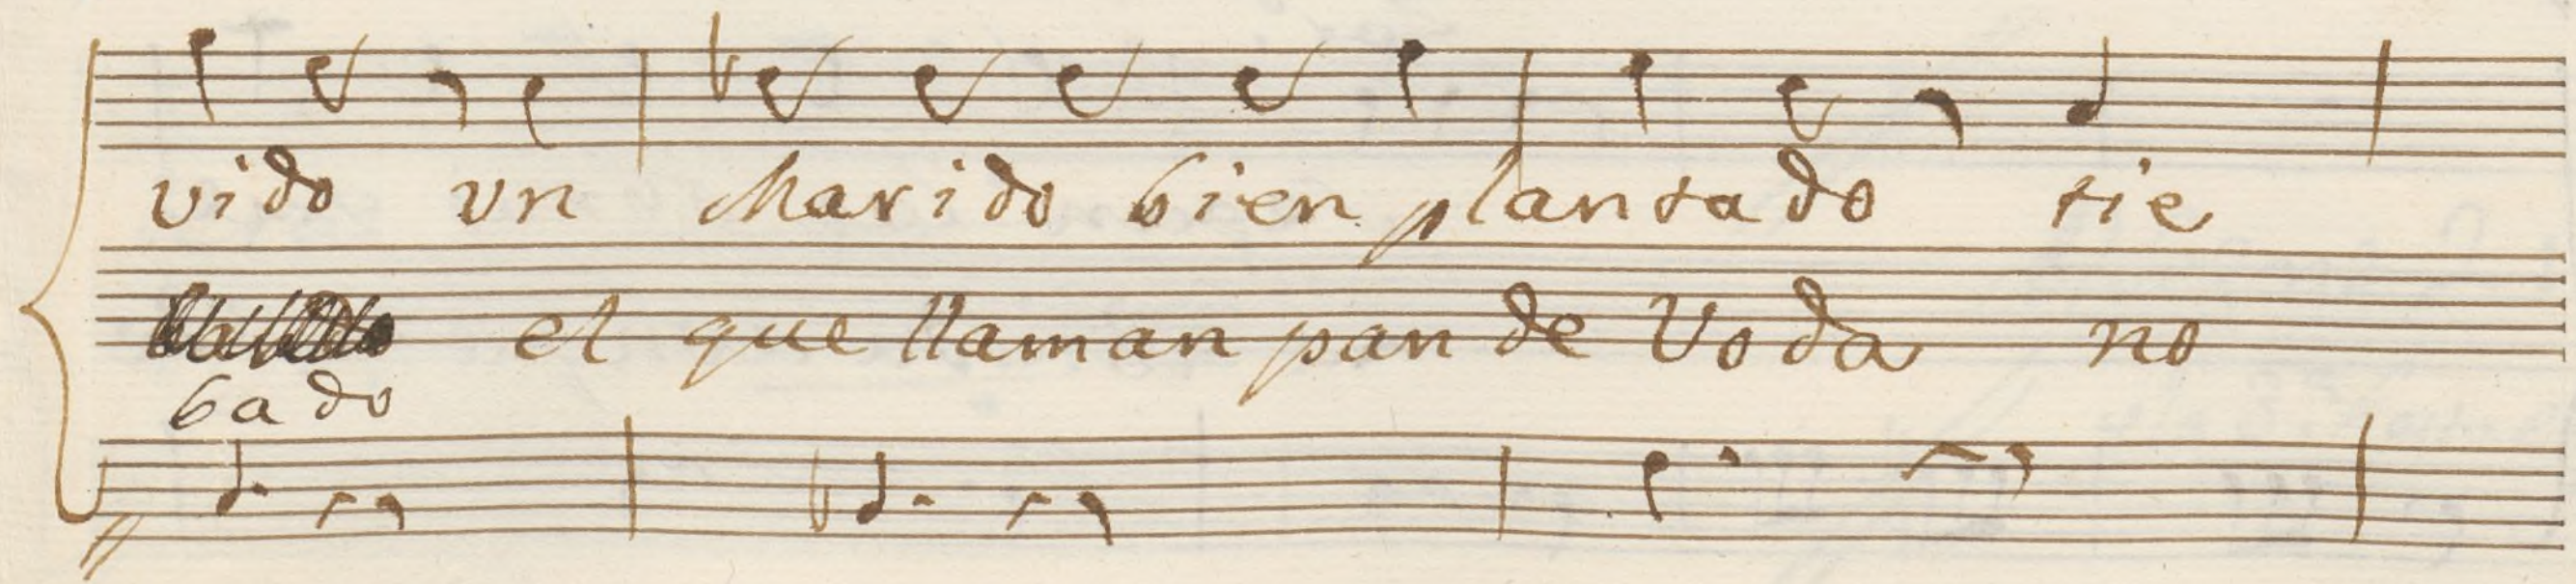 vido vn Marido bien plantado tie
el que llaman pan de Voda no
bado